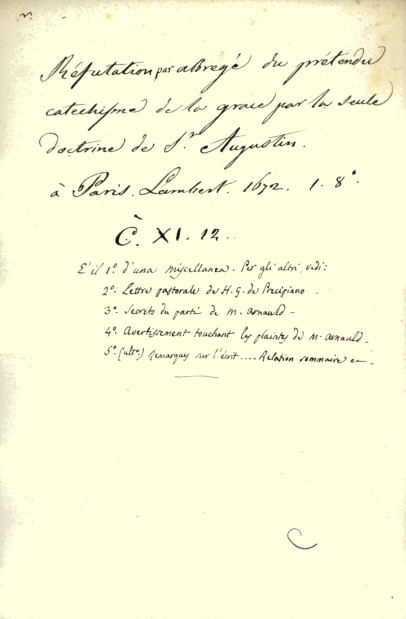 Réfutation par abregé du prétendu
catechisme de la grace par la seule
doctrine de S.r Augustin.
à Paris. Lambert. 1672. 1. 8°.
C. XI. 12..
E' il 1°. d'una miscellanea. Per gli altri, vidi:
2°. Lettre pastorale de H. G. de Precipiano -
3°. Secrets du parti de M. Arnauld -
4°. Avertissement touchant les plaintes de M. Arnauld -
5°. (ult°.) Remarques sur l'écrit .... Relation sommaire